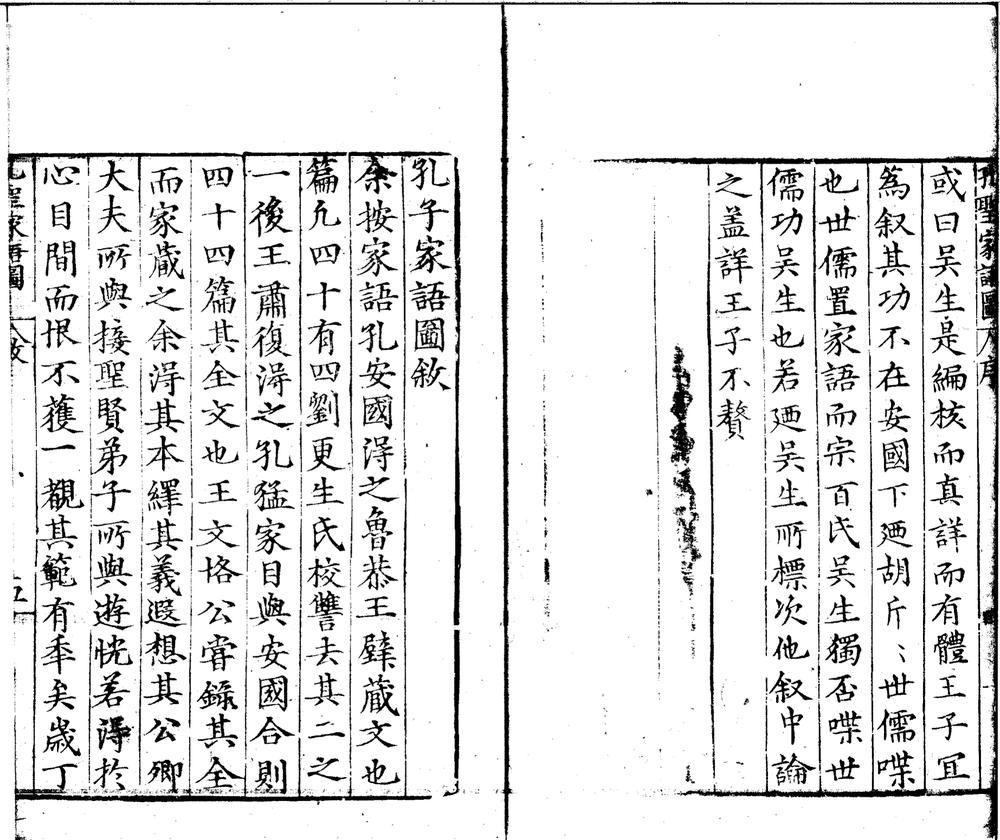 孔聖家語圖 序
或曰吴生是編核而真詳而有體王子冝
為叙其功不在安國下廼胡斤〻世儒喋
也世儒置家語而宗百氏吴生獨否喋世
儒功吴生也若廼吴生所標次他叙中論
之盖詳王子不贅
孔子家語圖敘
余按家語孔安國淂之魯恭王壁蔵文也
篇凢四十有四劉更生氏校讐去其二之
一後王肅復淂之孔猛家目與安國合則
四十四篇其全文也王文恪公甞錄其全
而家蔵之余淂其本繹其義遐想其公卿
大夫所與接聖賢弟子所與遊恍若淂扵
心目間而恨不獲一覩其範有秊矣歳丁
孔聖家語圖 敘 五